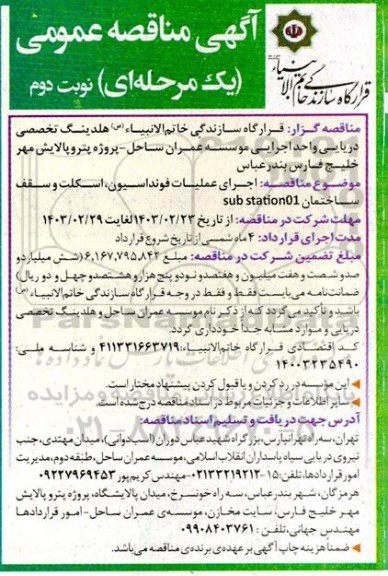 آگهی مناقصه عمومی
(یک مرحله‌ای) نوبت دوم
قرارگاه سازندگی خاتم الانبیاء
مناقصه گزار: قرارگاه سازندگی خاتم‌الانبیاء (ص) هلدینگ تخصصی
دریایی واحد اجرایی موسسه عمران ساحل-پروژه پتروپالایش مهر
خلیج فارس بندرعباس
موضوع مناقصه: اجرای عملیات فونداسیون، اسکلت و سقف
ساختمان sub station01
مهلت شرکت در مناقصه: از تاریخ ۱۴۰۳/۰۲/۲۳ لغایت ۱۴۰۳/۰۲/۲۹
مدت اجرای قرارداد: ۴ ماه شمسی از تاریخ شروع قرارداد
مبلغ تضمین شرکت در مناقصه: مبلغ ۶,۱۶۷,۷۹۵,۸۴۲ (شش میلیارد و
صد و شصت و هفت میلیون و هفتصد و نود و پنج هزار و هشتصد و چهل و دو ریال)
ضمانت‌نامه می‌بایست فقط و فقط در وجه قرارگاه سازندگی خاتم‌الانبیاء (ص)
باشد و تأکید می‌گردد که از ذکر نام موسسه عمران ساحل و هلدینگ تخصصی
دریایی و موارد مشابه جداً خودداری گردد.
کد اقتصادی قرارگاه خاتم‌الانبیاء: ۴۱۱۳۳۱۶۶۳۷۱۹ و شناسه ملی:
۱۴۰۰۳۲۳۵۴۹۰
این مؤسسه در رد کردن و یا قبول کردن پیشنهاد مختار است.
سایر اطلاعات و جزئیات مربوط در اسناد مناقصه درج شده است.
آدرس جهت دریافت و تسلیم اسناد مناقصه:
تهران، سه راه تهرانپارس، بزرگراه شهید عباس دوران (اسب‌دوانی)، میدان مهتدی، جنب
نیروی دریایی سپاه پاسداران انقلاب اسلامی، موسسه عمران ساحل، طبقه دوم، مدیریت
امور قراردادها، تلفن: ۱۵-۰۲۱۳۳۲۱۹۲۱۲-مهندس کریم‌پور ۰۹۲۲۷۹۶۹۴۵۳
هرمزگان، شهر بندرعباس، سه راه خونسرخ، میدان پالایشگاه، پروژه پترو پالایش
مهر خلیج فارس، سایت مخازن، موسسه‌ی عمران ساحل-امور قراردادها
مهندس جهانی، تلفن: ۰۹۹۰۸۴۰۳۷۶۱
ضمناً هزینه چاپ آگهی بر عهده‌ی برنده‌ی مناقصه می‌باشد.